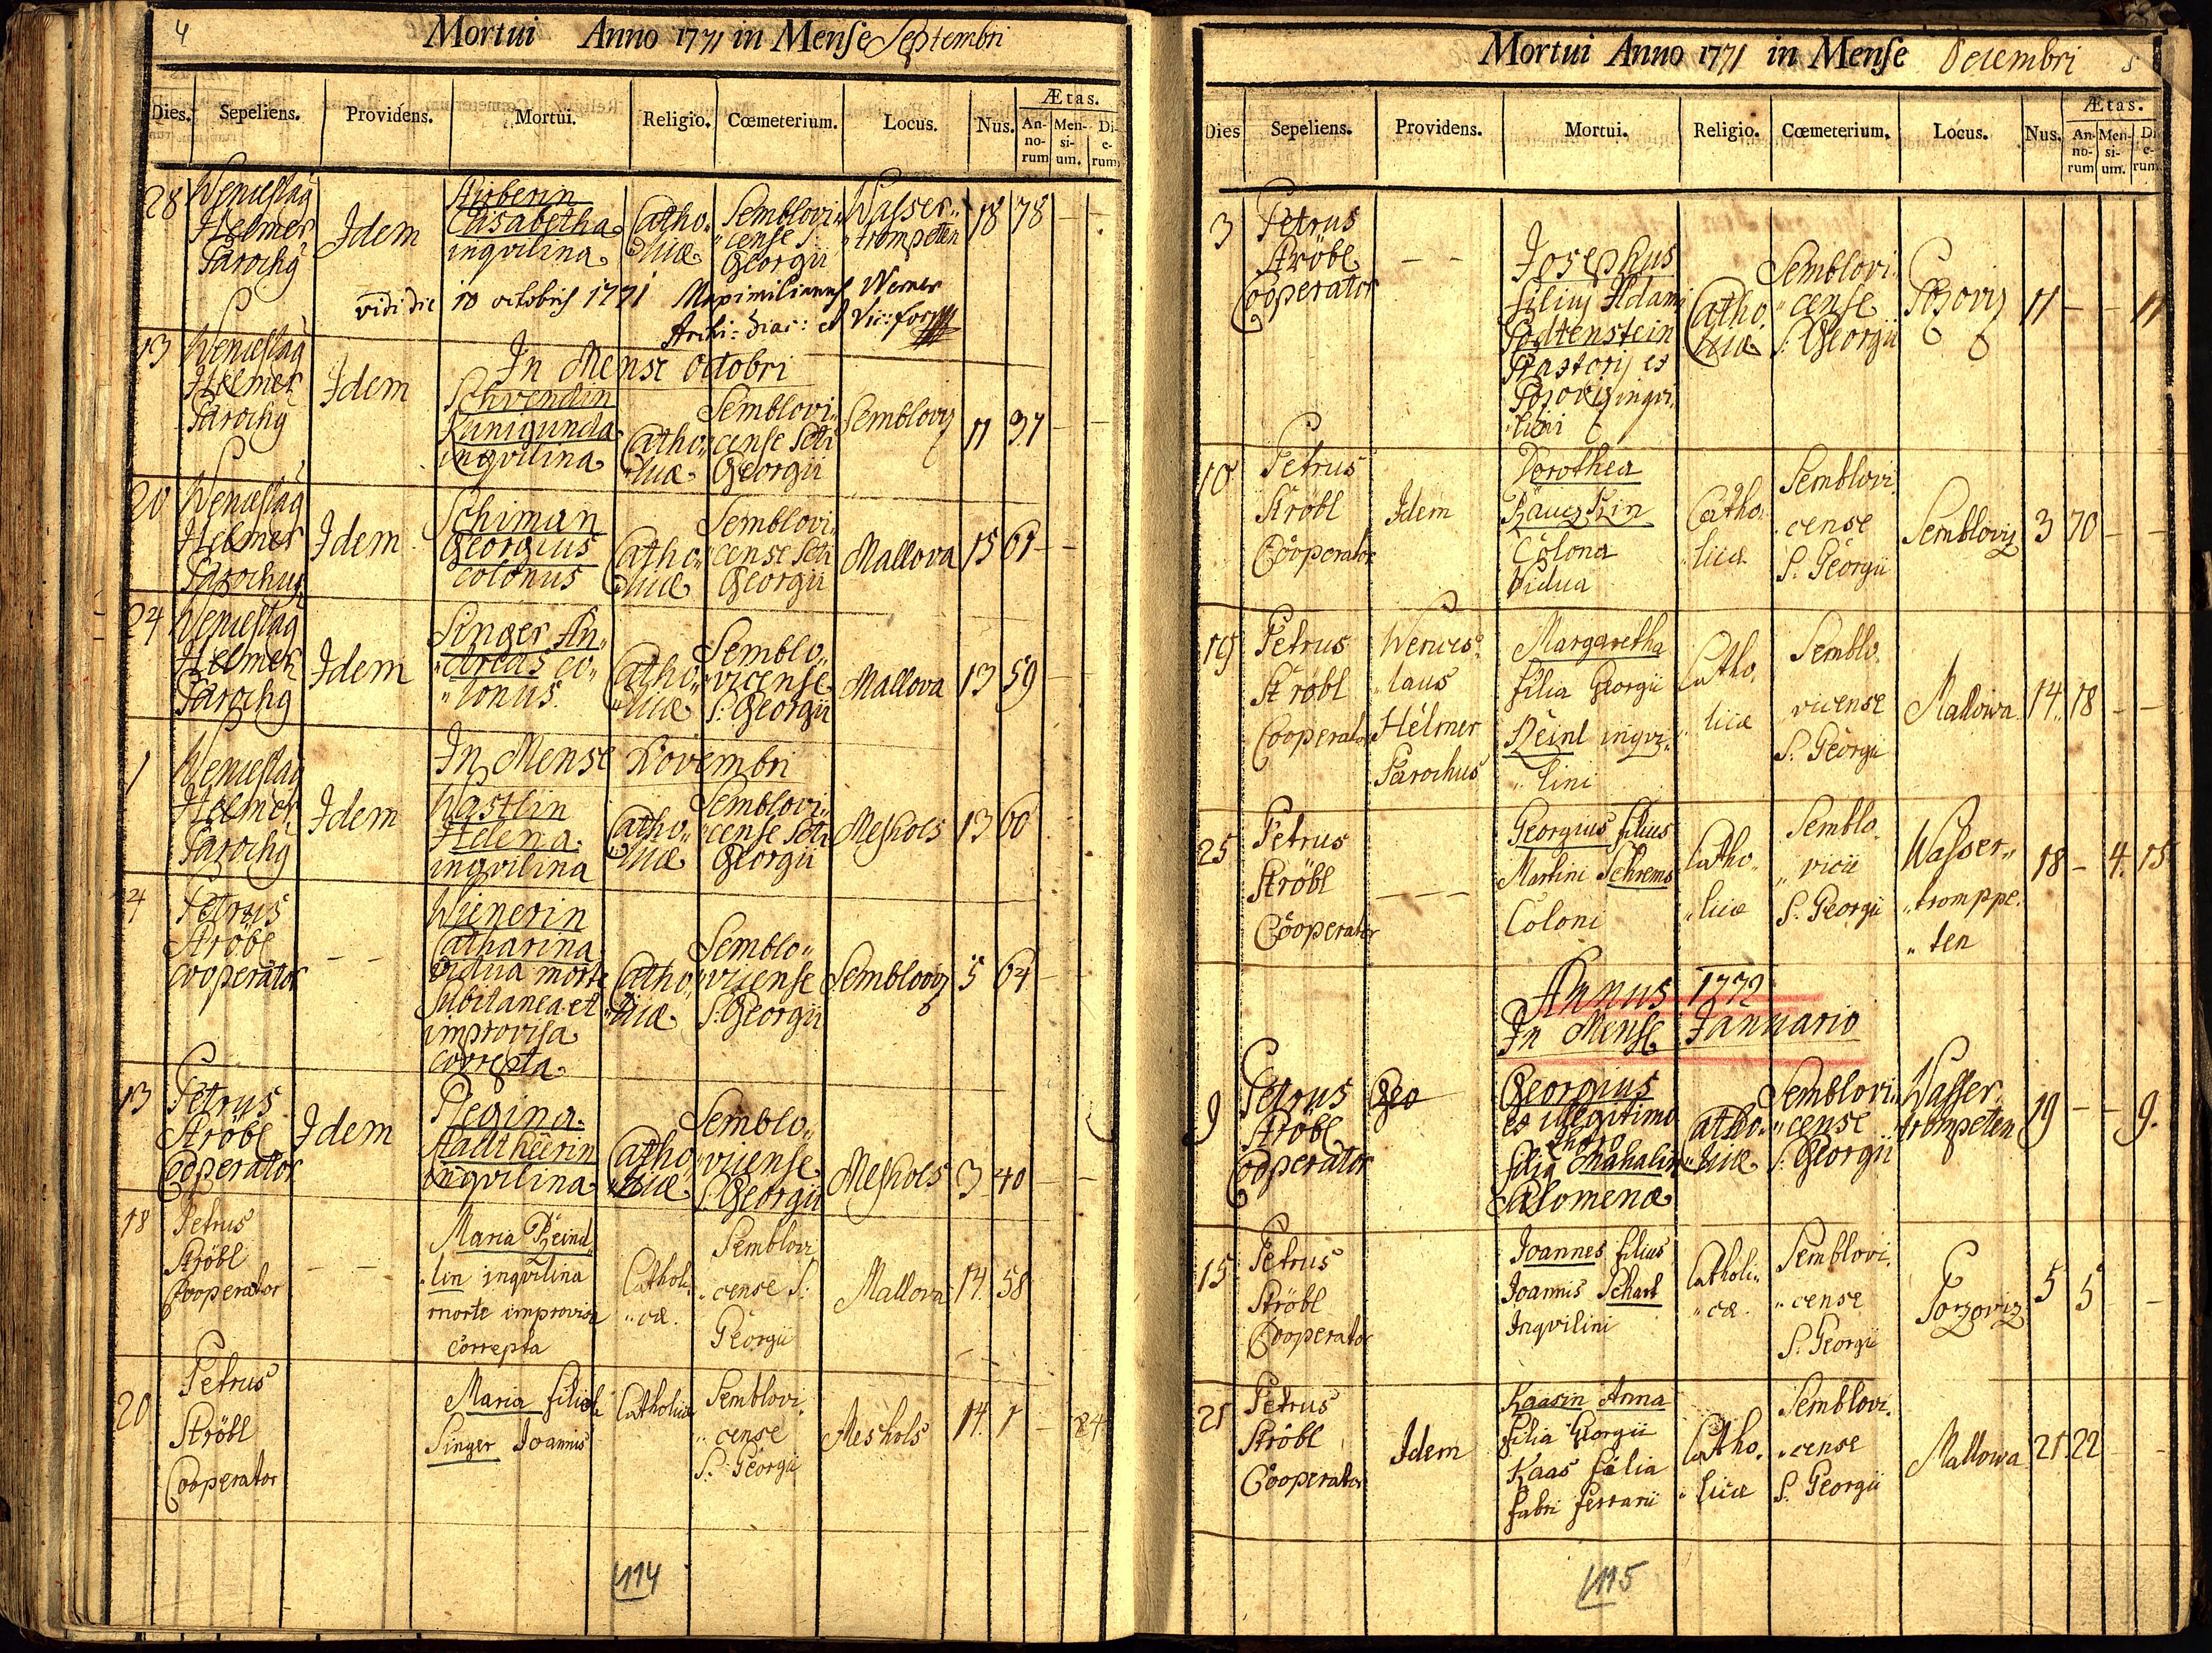 4
Mortui Anno 1771 in Mense Septembri
Dies. Sepeliens. Providens. Mortui. Religio. Cœmeterium. Locus. Nus. Ætas.
An-no-rum Men-si-um. Di-e-rum
28
Wenceslaus
Helmer
Parochus
Idem
Elisabetha
inqvilina
Catho„
„licæ
Semblovi„
„cense S.
Georgii
Wasser„
„trompeten
18 78 – –
vidi die 10 octobris 1771 Maximilianus Werner
Archi-diac: et Vic: for:
In Mense Octobri
13
Wenceslaus
Helmer
Parochus
Idem
Schvendin
Kunigunda
inqvilina
Catho„
„licæ
Semblovi„
cense Scti
Georgii
Sembloviz
11 37 – –
20
Wenceslaus
Helmer
Parochus
Idem
Schiman
Georgius
colonus
Catho„
„licæ
Semblovi„
cense Scti
Georgii
Mallova
15 61 – –
24
Wenceslaus
Helmer
Parochus
Idem
Singer An„
„dreas co„
„lonus.
Catho„
„licæ
Semblo„
„vicense
S. Georgii
Mallova
13 59 –
In Mense Novembri
1
Wenceslaus
Helmer
Parochus
Idem
Wastlin
Helena.
inqvilina
Catho„
„licæ
Semblovi„
cense Scti
Georgii
Meshols
13 60
4
Petrus
Ströbl
cooperator
– –
Catharina
vidua morte
Subitanea et
improvisa
correpta.
Catho„
„licæ
Semblo„
„vicense
S. Georgii
Sembloviz
5 64 – –
13
Petrus
Ströbl
Cooperator
Idem
Regina.
Stadtheerin
inqvilina
Catho„
„licæ
Semblo„
„vicense
S. Georgii
Meshols
3 40 – –
18
Petrus
Ströbl
Cooperator
– –
Maria Beind„
„lin inqvilina
morte improvisa
correpta
Catholi„
„cæ.
Semblovi
„cense S:
Georgii
Mallova
14. 58
20
Petrus
Ströbl
Cooperator
Maria filiola
Singer Joannis
Catholicæ
Semblovi.
„cense
S. Georgii
Meshols
14. 1 – 24
114
Mortui Anno 1771 in Mense Decembri
5
Dies Sepeliens. Providens. Mortui. Religio. Cœmeterium. Locus. Nus. Ætas.
An-no-rum Men-si-um. Di-e-rum
3
Petrus
Ströbl
Cooperator
– –
Josephus
filius Adami
Podtenstein
Pastoris et
inqvi„
„lini
Catho.
licæ
Semblovi.
„cense
S. Georgii
Pozoviz
11 – – 11
10
Petrus
Ströbl
Cooperator
Idem
Dorothea
Colona
Vidua
Catho.
„licæ
Semblovi.
cense
S. Georgii
Sembloviz
3 70 – –
19
Petrus
Ströbl
Cooperator
Wences.
„laus
Helmer
Parochus
Margaretha
filia Georgii
Beinl inqvi„
„lini
Catho.
licæ
Semblo.
„vicense
S. Georgii
Mallowa
14. 18 – –
25
Petrus
Ströbl
Cooperator
– – –
Georgius filius
Martini Schrems
Coloni
Catho„
„licæ
Semblo.
„vicii
S. Georgii
Wasser„
„tromppe.
„ten
18 – 4. 15
Annus 1772
In Mense Januario
9
Petrus
Ströbl
Cooperator
Geo
Georgius
ex illegitimo
thoro
Salomenæ
Catho.
„licæ
Semblovi„
„cense
S. Georgii
Wasser.
trompeten
19 – – 9.
15
Petrus
Ströbl
Cooperator
Joannes filius
Joannis Scharl
Inqvilini
Catholi„
„cæ.
Semblovi.
„cense
S. Georgii
Porzoviz
5 5 –
21
Petrus
Ströbl
Cooperator
Idem
Kaasin Anna
filia Georgii
Kaas filia
fabri ferrarii
Catho.
„licæ
Semblovi.
„cense
S. Georgii
Mallowa
21. 22 –
115